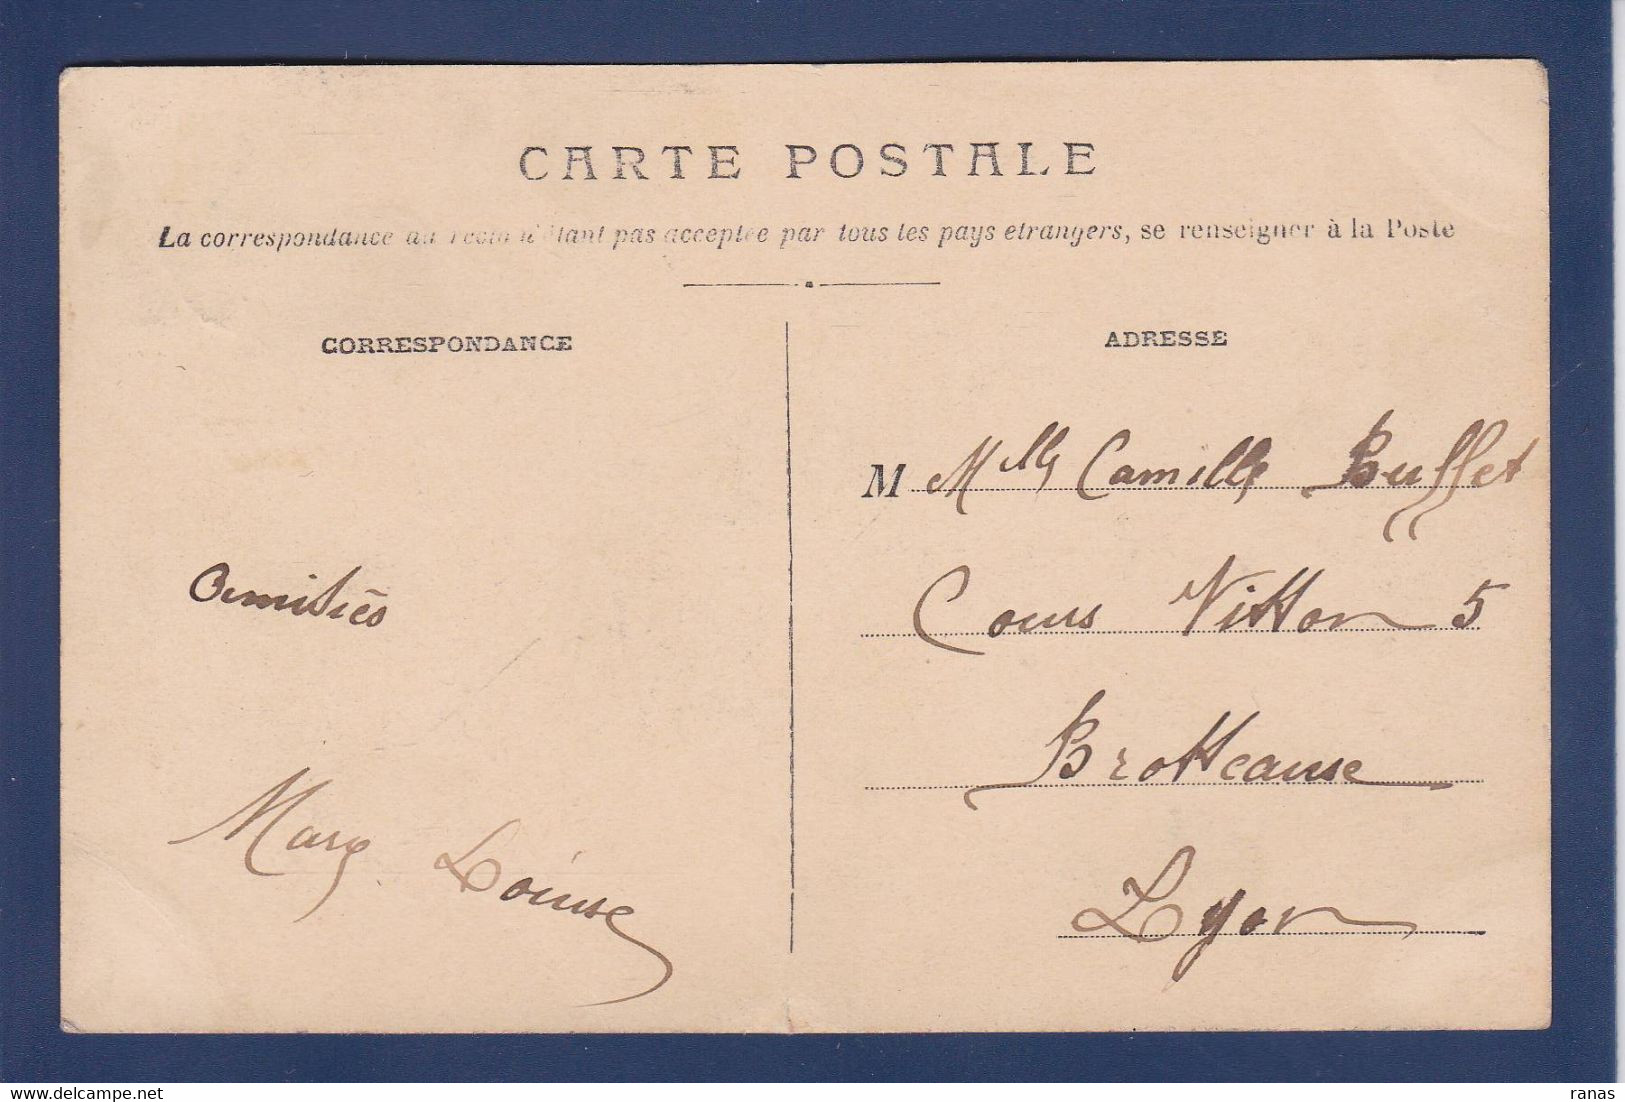 CARTE POSTALE
La correspondance au recto n'étant pas acceptée par tous les pays étrangers, se renseigner à la Poste
CORRESPONDANCE
ADRESSE
M Mlle Camille Buffet
Cours Vitton 5
Brotteause
Lyon
Amitiés
Mary Louise
delcampe.net
ranas